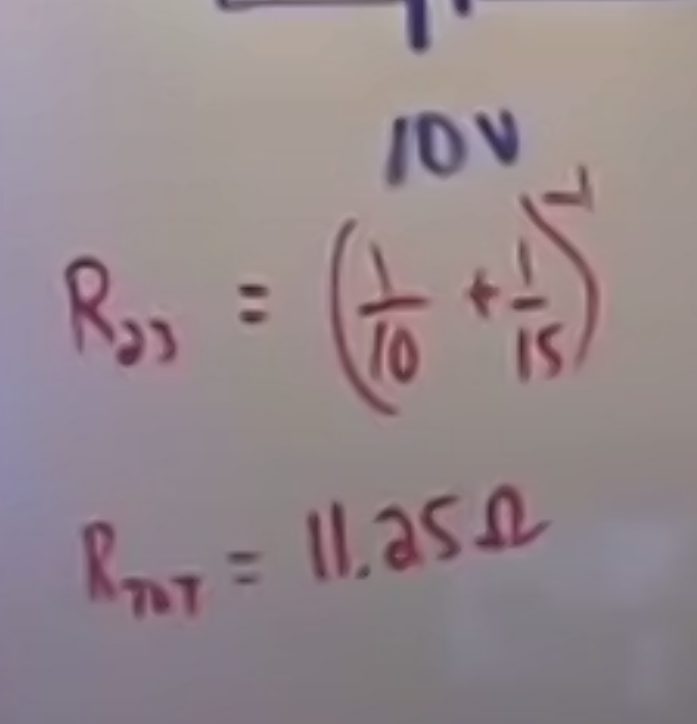 10V
R₂₃ = (1/10 + 1/15)⁻¹
R_TOT = 11.25 Ω